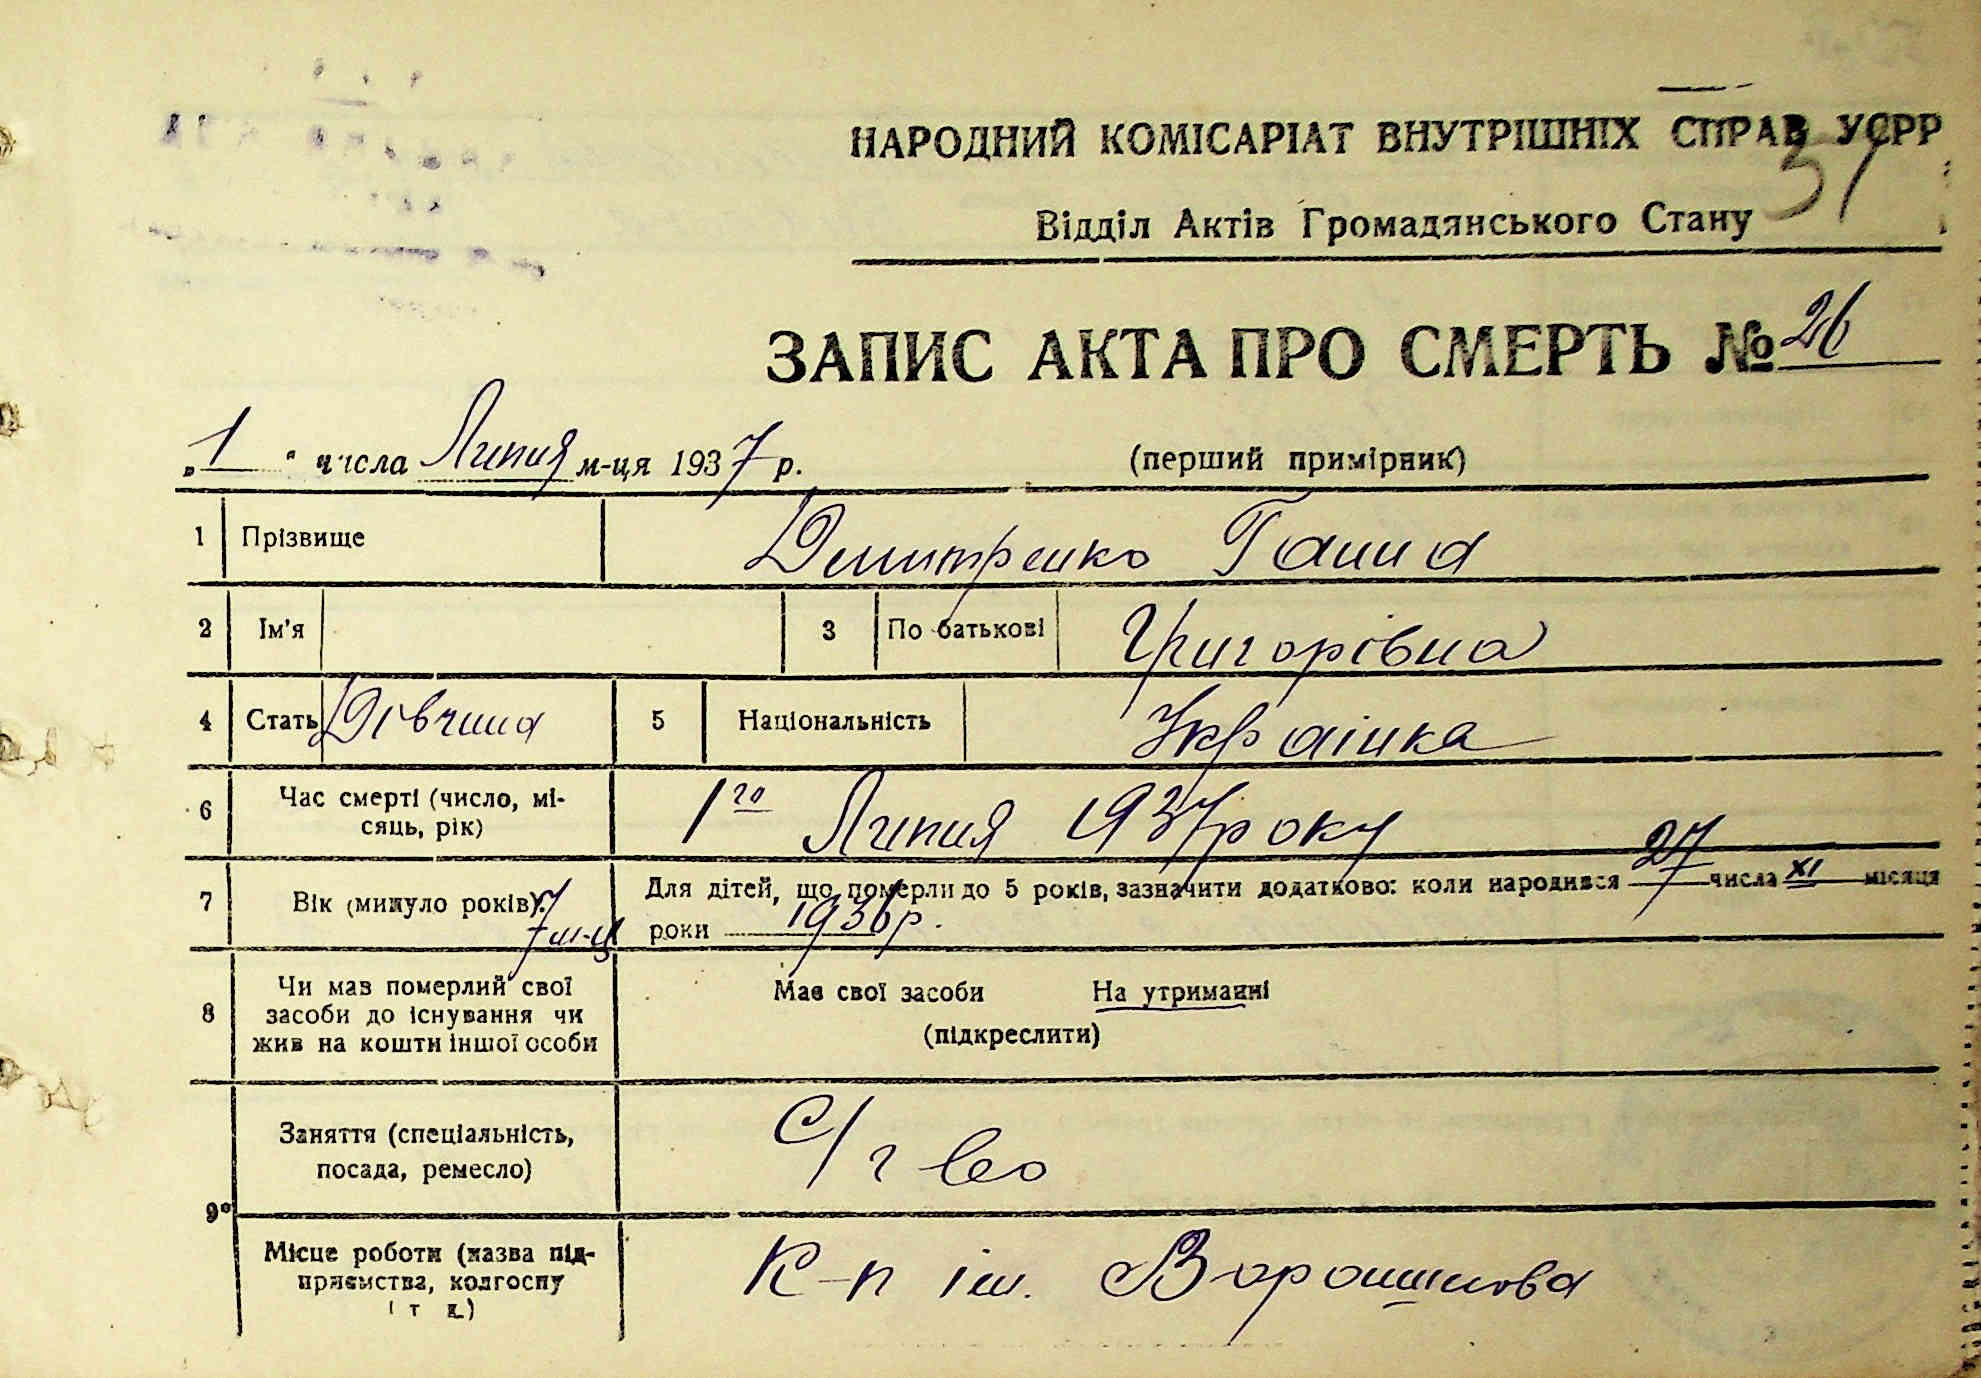 НАРОДНИЙ КОМІСАРІАТ ВНУТРІШНІХ СПРАВ УСРР
Відділ Актів Громадянського Стану
ЗАПИС АКТА ПРО СМЕРТЬ № 26
„1“ числа Липня м-ця 1937 р. (перший примірник)
1 Прізвище Дмитренко Ганна
2 Ім'я 3 По батькові Григорівна
4 Стать Дівчина 5 Національність Українка
6 Час смерті (число, мі-
сяць, рік) 1го Липня 1937 року
7 Вік (минуло років) 7 м-ц
Для дітей, що померли до 5 років, зазначити додатково: коли народився 27 числа XI місяця
роки 1936 р.
8 Чи мав померлий свої
засоби до існування чи
жив на кошти іншої особи
Має свої засоби На утриманні
(підкреслити)
9
Заняття (спеціальність,
посада, ремесло) С/г
Місце роботи (назва під-
приємства, колгоспу
і т д.) К-п ім. Ворошилова